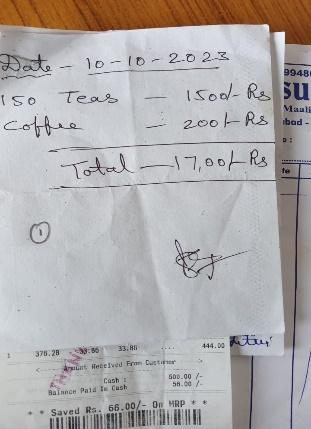 Date - 10-10-2023
150 Teas - 1500/- Rs
Coffee - 200/- Rs
Total - 17,00/- Rs
1
99480
su
Maali
bad -
1 376.28 33.86 33.86 444.00
Amount Received From Customer
Cash : 500.00 /-
Balance Paid In Cash 56.00 /-
* * Saved Rs. 66.00/- On MRP * *